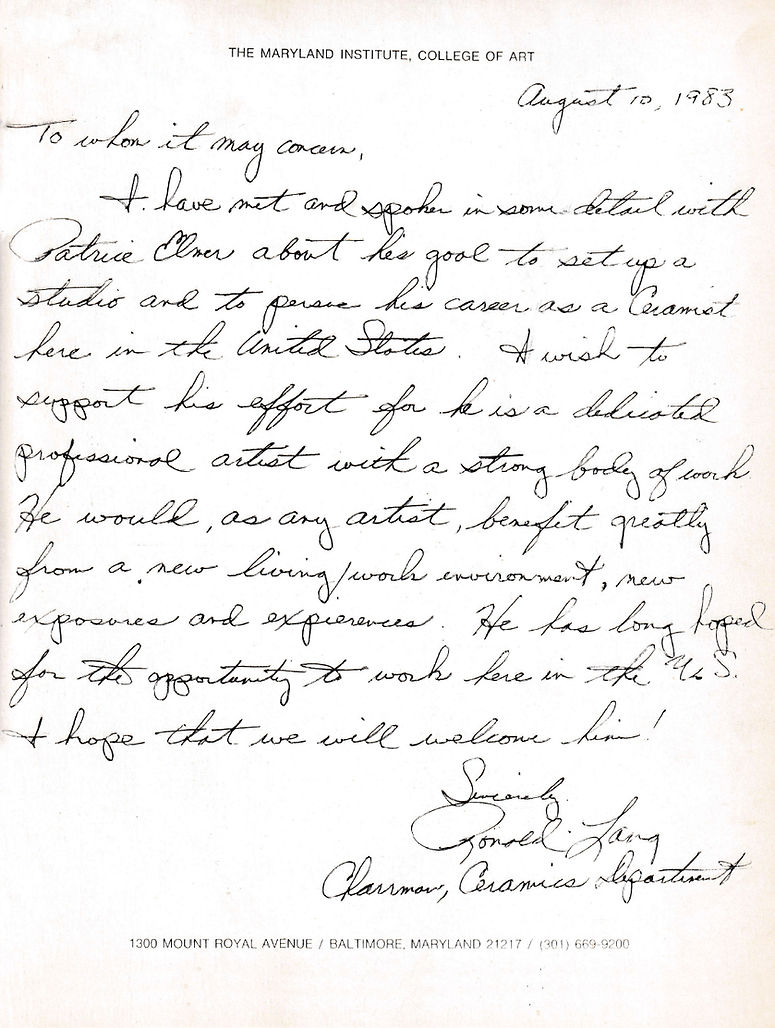 THE MARYLAND INSTITUTE, COLLEGE OF ART
August 10, 1983
To whom it may concern,
I have met and spoken in some detail with
Patrice Elmer about his goal to set up a
studio and to persue his career as a Ceramist
here in the United States. I wish to
support his effort for he is a dedicated
professional artist with a strong body of work
He would, as any artist, benefit greatly
from a new living/work environment, new
exposures and expierences. He has long hoped
for the opportunity to work here in the U.S.
I hope that we will welcome him!
Sincerely,
Ronald Lang
Chairman, Ceramics Department
1300 MOUNT ROYAL AVENUE / BALTIMORE, MARYLAND 21217 / (301) 669-9200